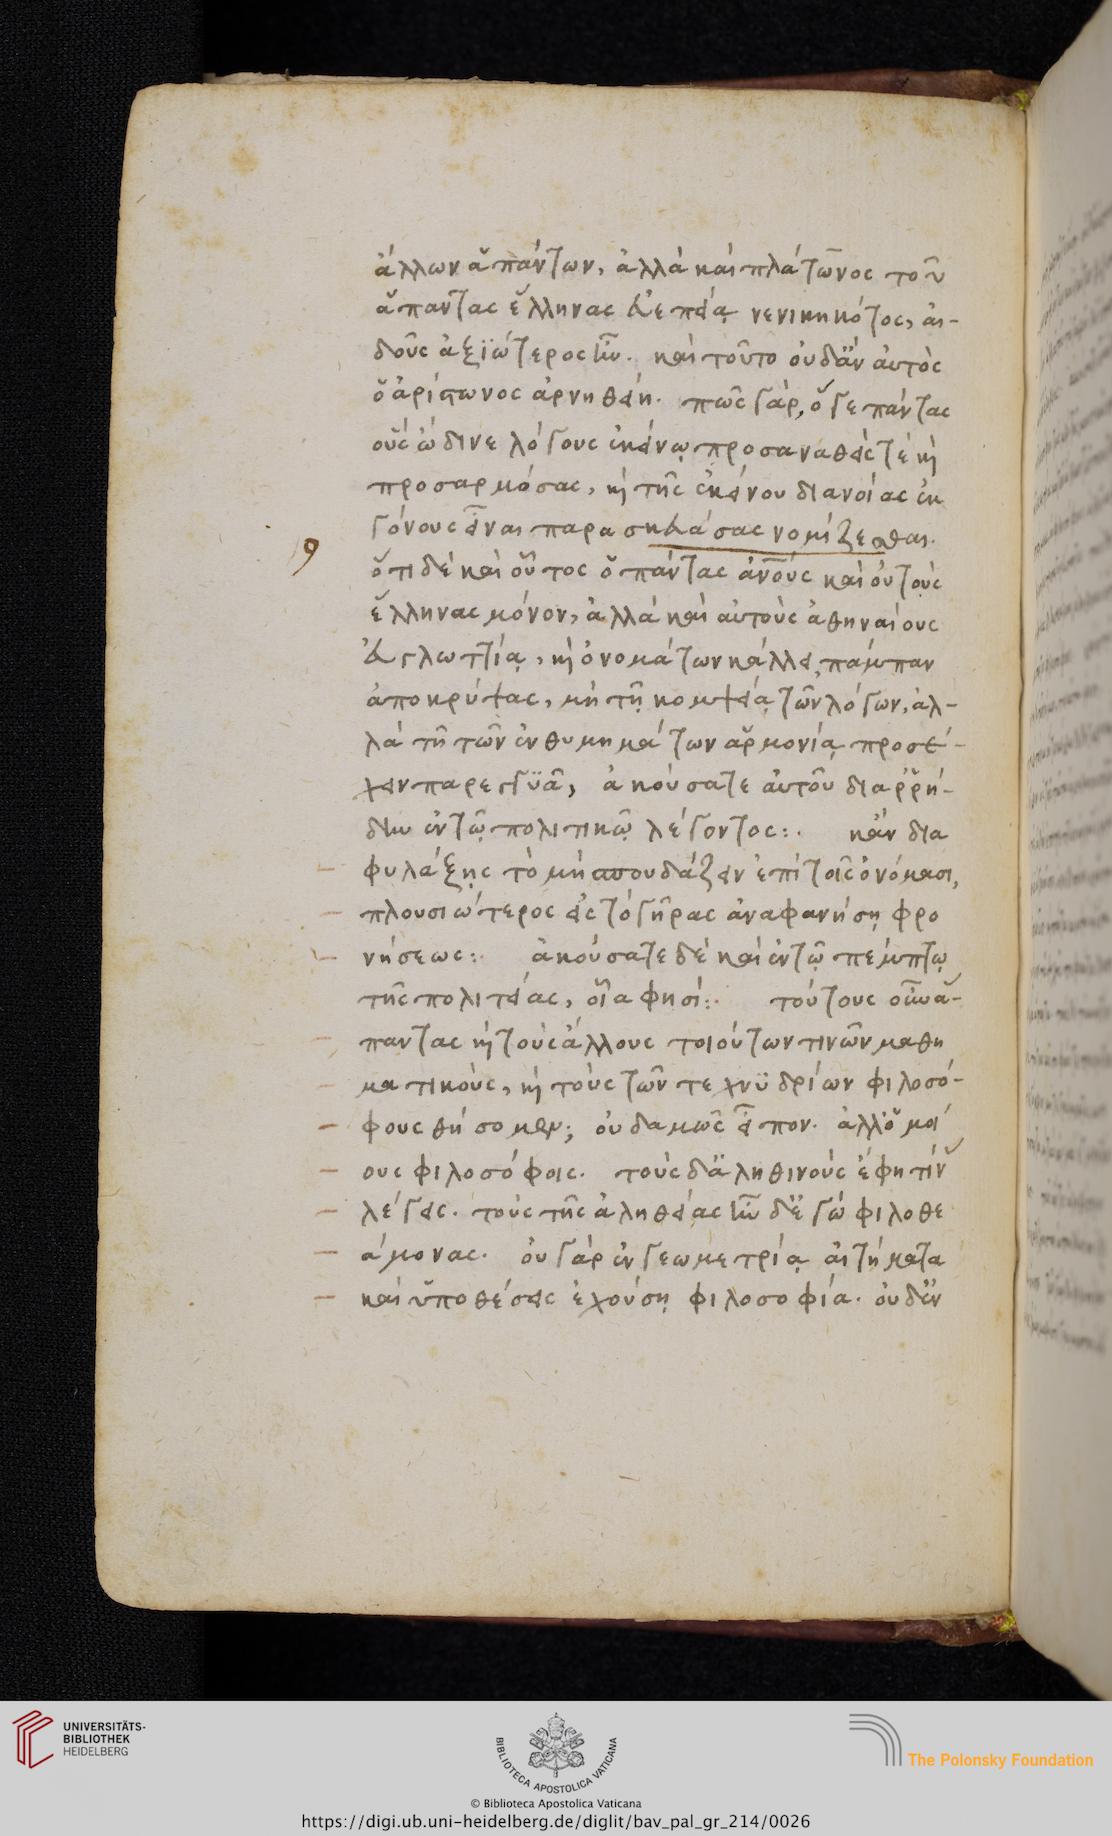 ἄλλων ἁπάντων, ἀλλὰ καὶ πλάτωνος τοῦ
ἅπαντας ἕλληνας εὐεπείᾳ νενικηκότος, αἰ-
δοῦς ἀξιώτερος ἦν. καὶ τοῦτο οὐδ' ἂν αὐτὸς
ὁ ἀρίστωνος ἀρνηθείη. πῶς γὰρ, ὅ γε πάντας
οὓς ὤδινε λόγους ἐκείνῳ προσαναθείς τέ καὶ
προσαρμόσας, καὶ τῆς ἐκείνου διανοίας ἐκ
γόνους εἶναι παρασκευάσας νομίζεσθαι.
9
ὅτι δὲ καὶ οὗτος ὁ πάντας ἀνους καὶ οὐ τοὺς
ἕλληνας μόνον, ἀλλὰ καὶ αὐτοὺς ἀθηναίους
εὐγλωττίᾳ, καὶ ὀνομάτων κάλλει πάμπαν
ἀποκρύψας, μὴ τῇ κομψείᾳ τῶν λόγων, ἀλ-
λὰ τῇ τῶν ἐνθυμημάτων ἁρμονίᾳ προσέ-
χειν παρεγγυᾶ, ἀκούσατε αὐτοῦ διαρρή-
δην ἐν τῷ πολιτικῷ λέγοντος:. κἂν δια
φυλάξῃς τὸ μὴ σπουδάζειν ἐπὶ τοῖς ὀνόμασι,
πλουσιώτερος εἰς τὸ γῆρας ἀναφανήσῃ φρο
νήσεως: ἀκούσατε δὲ καὶ ἐν τῷ πέμπτῳ
τῆς πολιτείας, οἷα φησί:. τούτους οὖν ἅ-
παντας καὶ τοὺς ἄλλους τοιούτων τινῶν μαθη
ματικοὺς, καὶ τοὺς τῶν τεχνυδρίων φιλοσό-
φους θήσομεν; οὐδαμῶς εἶπον. ἀλλ' ὁμοί
ους φιλοσόφοις. τοὺς δ' ἀληθινοὺς ἔφη τίν
λέγεις. τοὺς τῆς ἀληθείας ἦν δ' ἐγὼ φιλοθε
άμονας. οὐ γὰρ ἐν γεωμετρίᾳ αἰτήματα
καὶ ὑποθέσεις ἐχούσῃ φιλοσοφία. οὐδ' ἐν
UNIVERSITÄTS-
BIBLIOTHEK
HEIDELBERG
BIBLIOTECA APOSTOLICA VATICANA
The Polonsky Foundation
© Biblioteca Apostolica Vaticana
https://digi.ub.uni-heidelberg.de/diglit/bav_pal_gr_214/0026